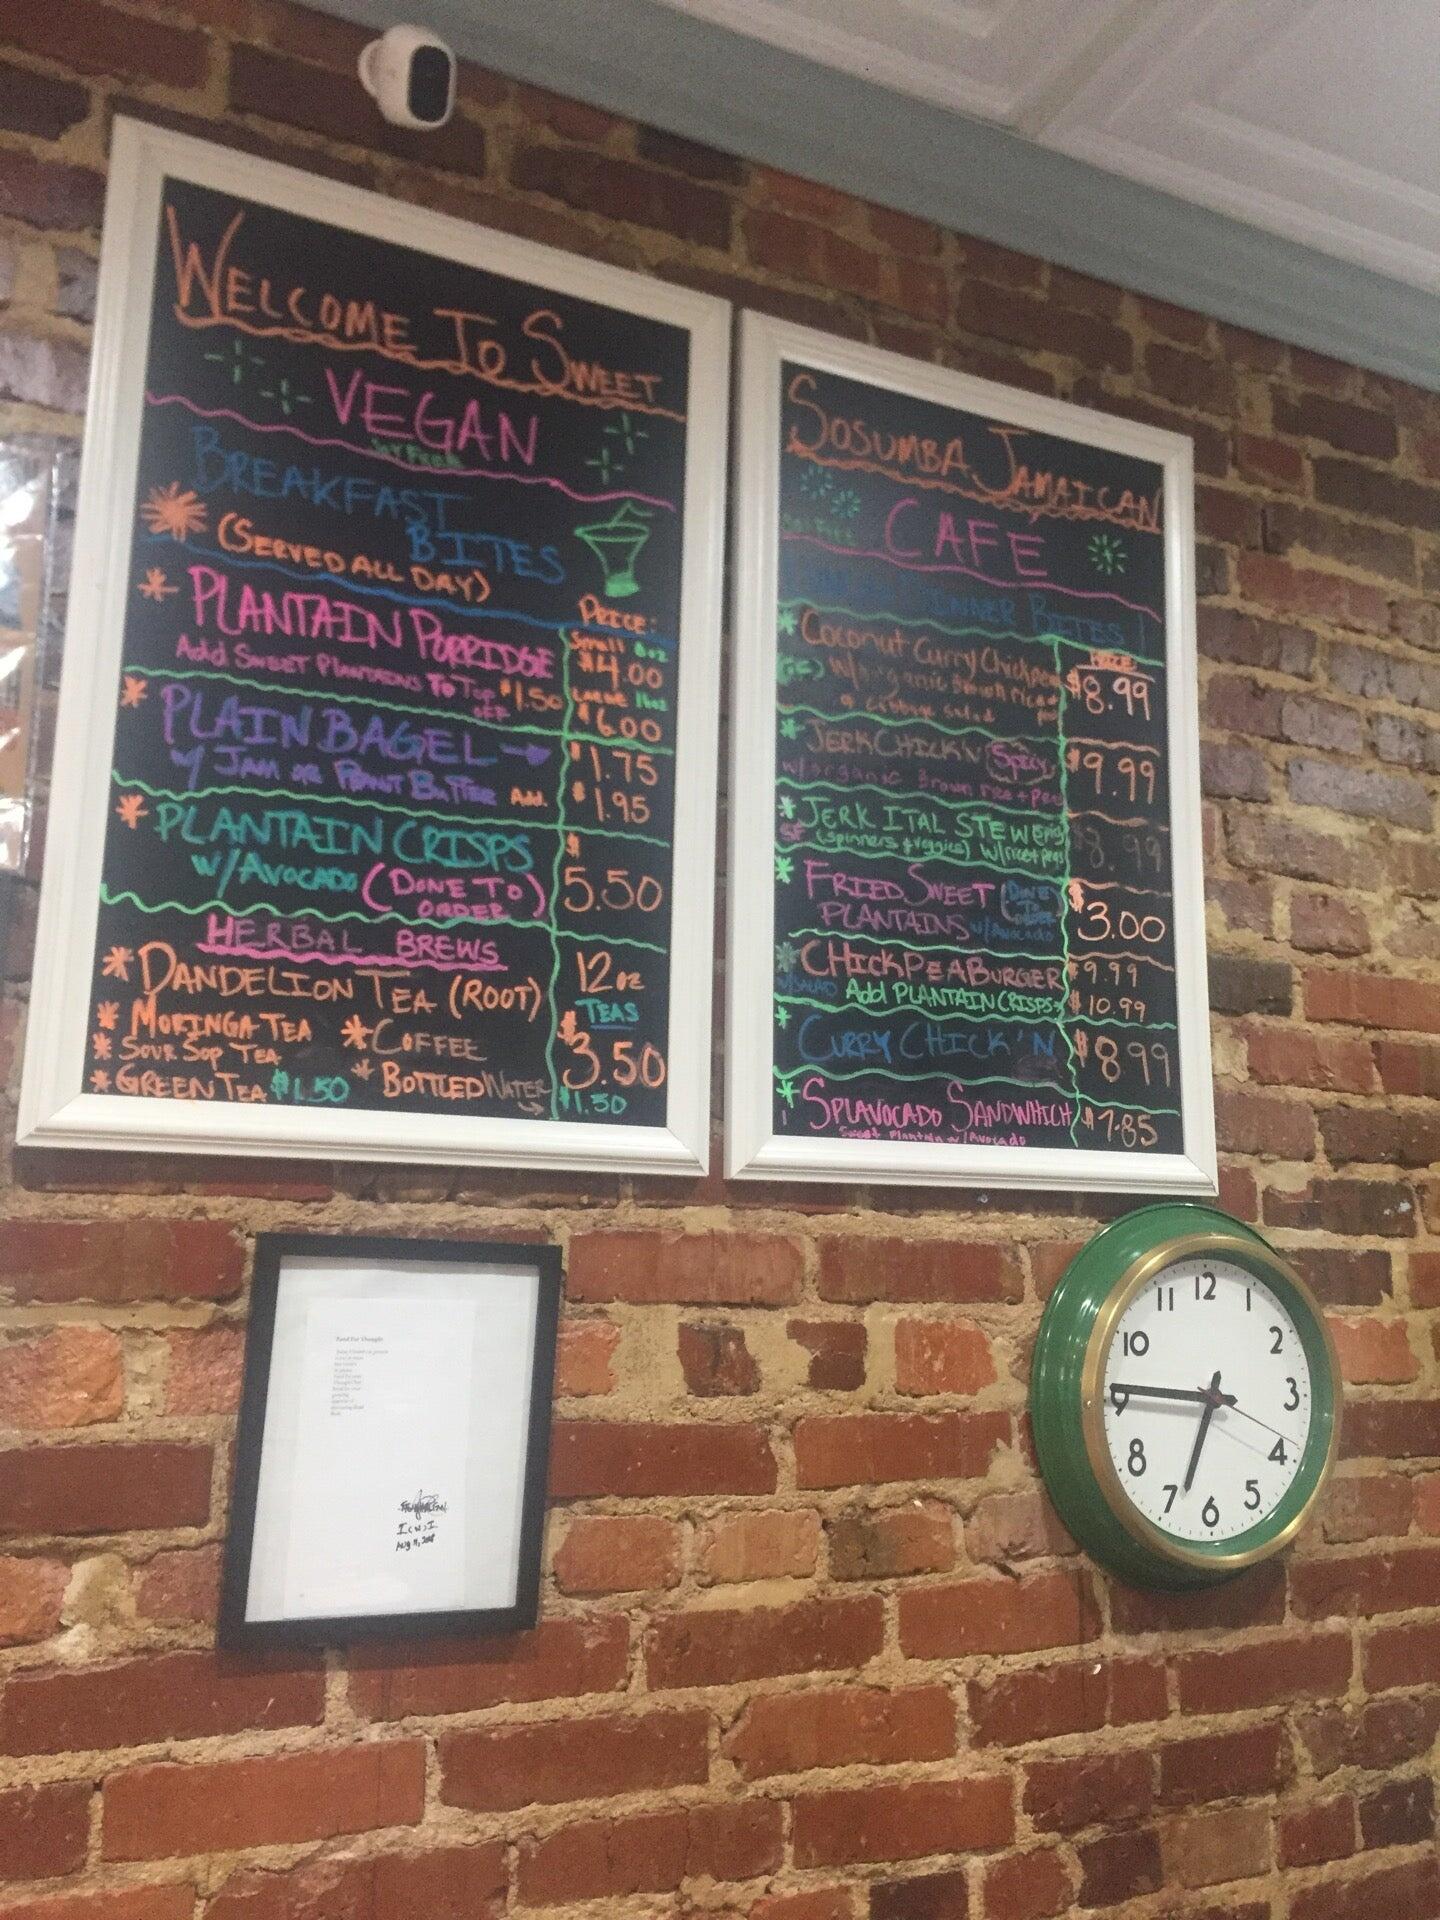 WELCOME TO SWEET
VEGAN
SOY FREE
BREAKFAST
BITES
(SERVED ALL DAY)
PRICE:
* PLANTAIN PORRIDGE
Small 8oz
$4.00
Add SWEET PLANTAINS TO TOP $1.50
OFF
LARGE 16oz
$6.00
* PLAIN BAGEL → $1.75
W/ JAM OR PEANUT BUTTER Add. $1.95
* PLANTAIN CRISPS
W/AVOCADO (DONE TO
ORDER)
$
5.50
HERBAL BREWS
* DANDELION TEA (ROOT)
12oz
TEAS
$3.50
* MORINGA TEA * COFFEE
* SOUR SOP TEA
* GREEN TEA $1.50 * BOTTLED WATER
→ $1.50
SOSUMBA JAMAICAN
CAFÉ
DINNER BITES
PRICE
* Coconut Curry Chickpea
W/organic Brown rice &
cabbage salad
$8.99
* JERK CHICK'N Spicy
w/organic Brown rice + pea
$9.99
* JERK ITAL STEW Spicy
SF (spinners + veggies) W/rice + peas
8.99
* FRIED SWEET
PLANTAINS W/Avocado
(DONE
TO
ORDER)
$3.00
* CHICKPEA BURGER $9.99
W/SALAD Add PLANTAIN CRISPS → $10.99
* CURRY CHICK'N $8.99
* SPLAVOCADO SANDWHICH $7.85
Sweet Plantain w/Avocado
Food For Thought
Aug 11, 2018
12
1
2
3
4
5
6
7
8
9
10
11